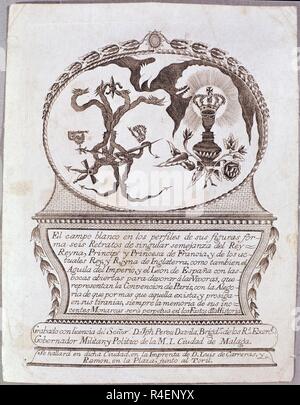 El campo blanco en los perfiles de sus figuras for-
ma seis Retratos de singular semejanza del Rey
Reyna, Principe y Princesa de Francia, y de los ac-
tuales Rey, y Reyna de Inglaterra, como tambien el
Aguila del Imperio, y el Leon de España con las
bocas abiertas para devorar la Vivora, que
representan la Convencion de Paris, con la Alego-
ria de que por mas que aquella exista, y prosiga
en sus tiranias, siempre la memoria de sus ino-
centes Monarcas será perpetua en los Fastos de la Historia
Grabado con licencia del Señor D. Jph. Perez Davila, Brigd. de los R.s Exerc.s
Gobernador Militar y Politico de la M. I. Ciudad de Malaga.
Se hallará en dicha Ciudad, en la Imprenta de D. Luis de Carreras, y
Ramon, en la Plaza, junto al Toril.
alamy
R4ENYX
www.alamy.com